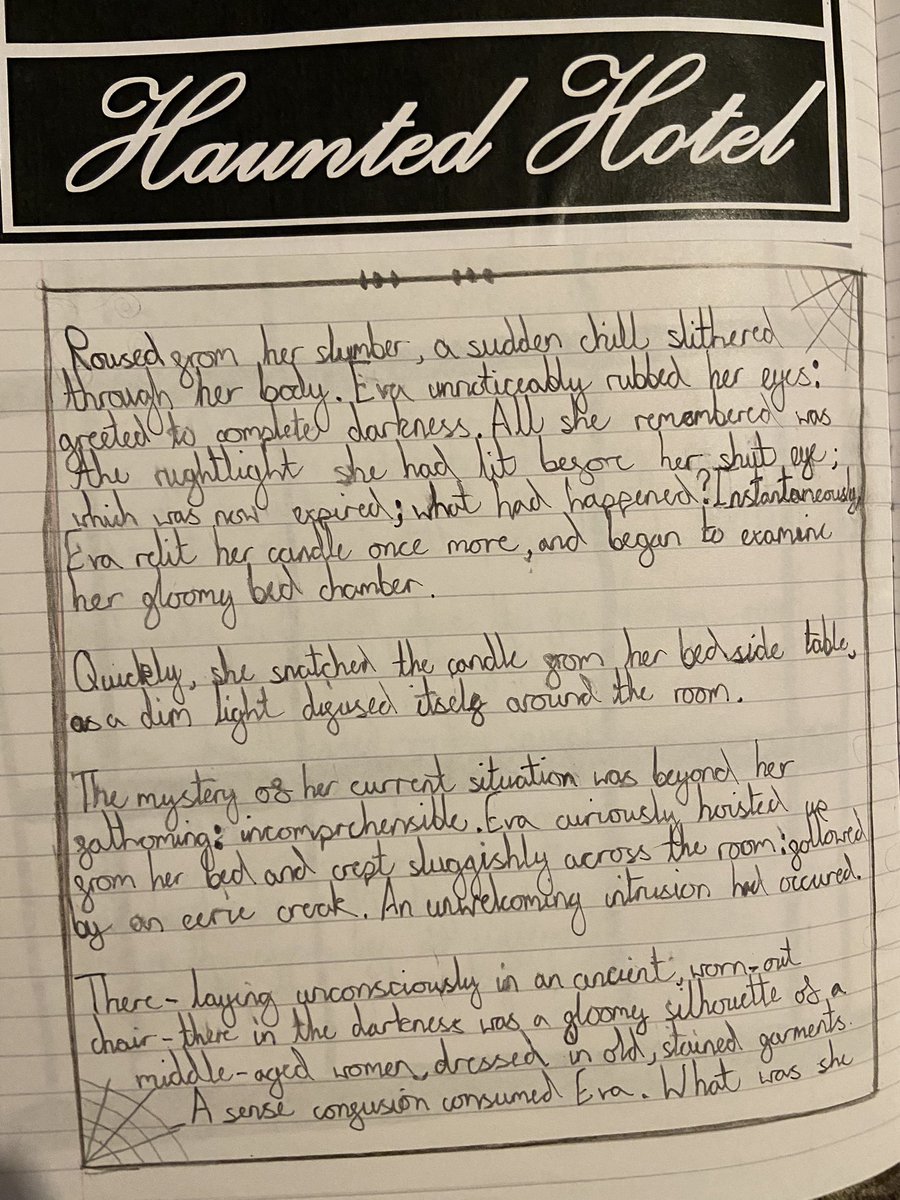 Haunted Hotel
Roused from her slumber, a sudden chill slithered
through her body. Eva unnoticeably rubbed her eyes:
greeted to complete darkness. All she remembered was
the nightlight she had lit before her shut eye;
which was now expired; what had happened? Instantaneously,
Eva relit her candle once more, and began to examine
her gloomy bed chamber.
Quickly, she snatched the candle from her bedside table,
as a dim light difused itself around the room.
The mystery of her current situation was beyond her
fathoming: incomprehensible. Eva curiously hoisted up
from her bed and crept sluggishly across the room: followed
by an eerie creak. An unwelcoming intrusion had occured.
There - laying unconsciously in an ancient, worn-out
chair - there in the darkness was a gloomy silhouette of a
middle-aged women, dressed in old, stained garments.
A sense confusion consumed Eva. What was she